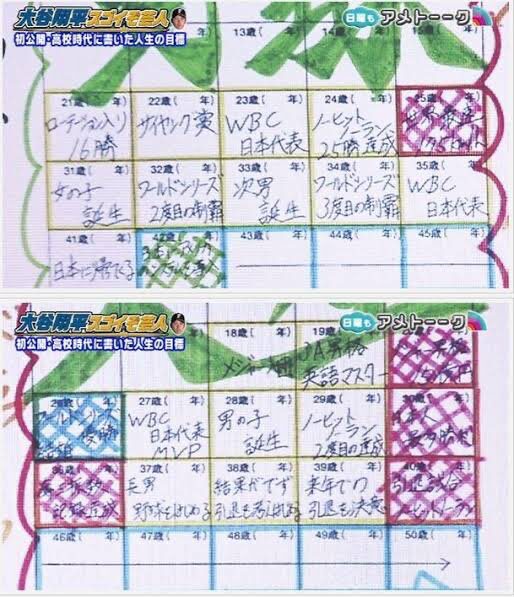 大谷翔平スゴイぞ芸人
初公開・高校時代に書いた人生の目標
日曜もアメトーーク
13歳( 年)
14歳( 年)
21歳( 年)
ローテーション入り
16勝
22歳( 年)
サイヤング賞
23歳( 年)
WBC
日本代表
24歳( 年)
ノーヒット
ノーラン
25勝達成
25歳( 年)
世界最速
175km/h
31歳( 年)
女の子
誕生
32歳( 年)
ワールドシリーズ
2度目の制覇
33歳( 年)
次男
誕生
34歳( 年)
ワールドシリーズ
3度目の制覇
35歳( 年)
WBC
日本代表
41歳( 年)
日本に帰ってくる
42歳( 年)
43歳( 年)
44歳( 年)
45歳( 年)
大谷翔平スゴイぞ芸人
初公開・高校時代に書いた人生の目標
日曜もアメトーーク
18歳( 年)
メジャー入団
19歳( 年)
3A昇格
英語マスター
メジャー昇格
26歳( 年)
ワールドシリーズ
優勝
結婚
27歳( 年)
WBC
日本代表
MVP
28歳( 年)
男の子
誕生
29歳( 年)
ノーヒット
ノーラン
2度目の達成
30歳( 年)
日本人
最多勝利
36歳( 年)
奪三振数
記録達成
37歳( 年)
長男
野球をはじめる
38歳( 年)
結果がでず
引退も考えはじめる
39歳( 年)
来年での
引退を決意
40歳( 年)
引退試合
ノーヒットノーラン
46歳( 年)
47歳( 年)
48歳( 年)
49歳( 年)
50歳( 年)